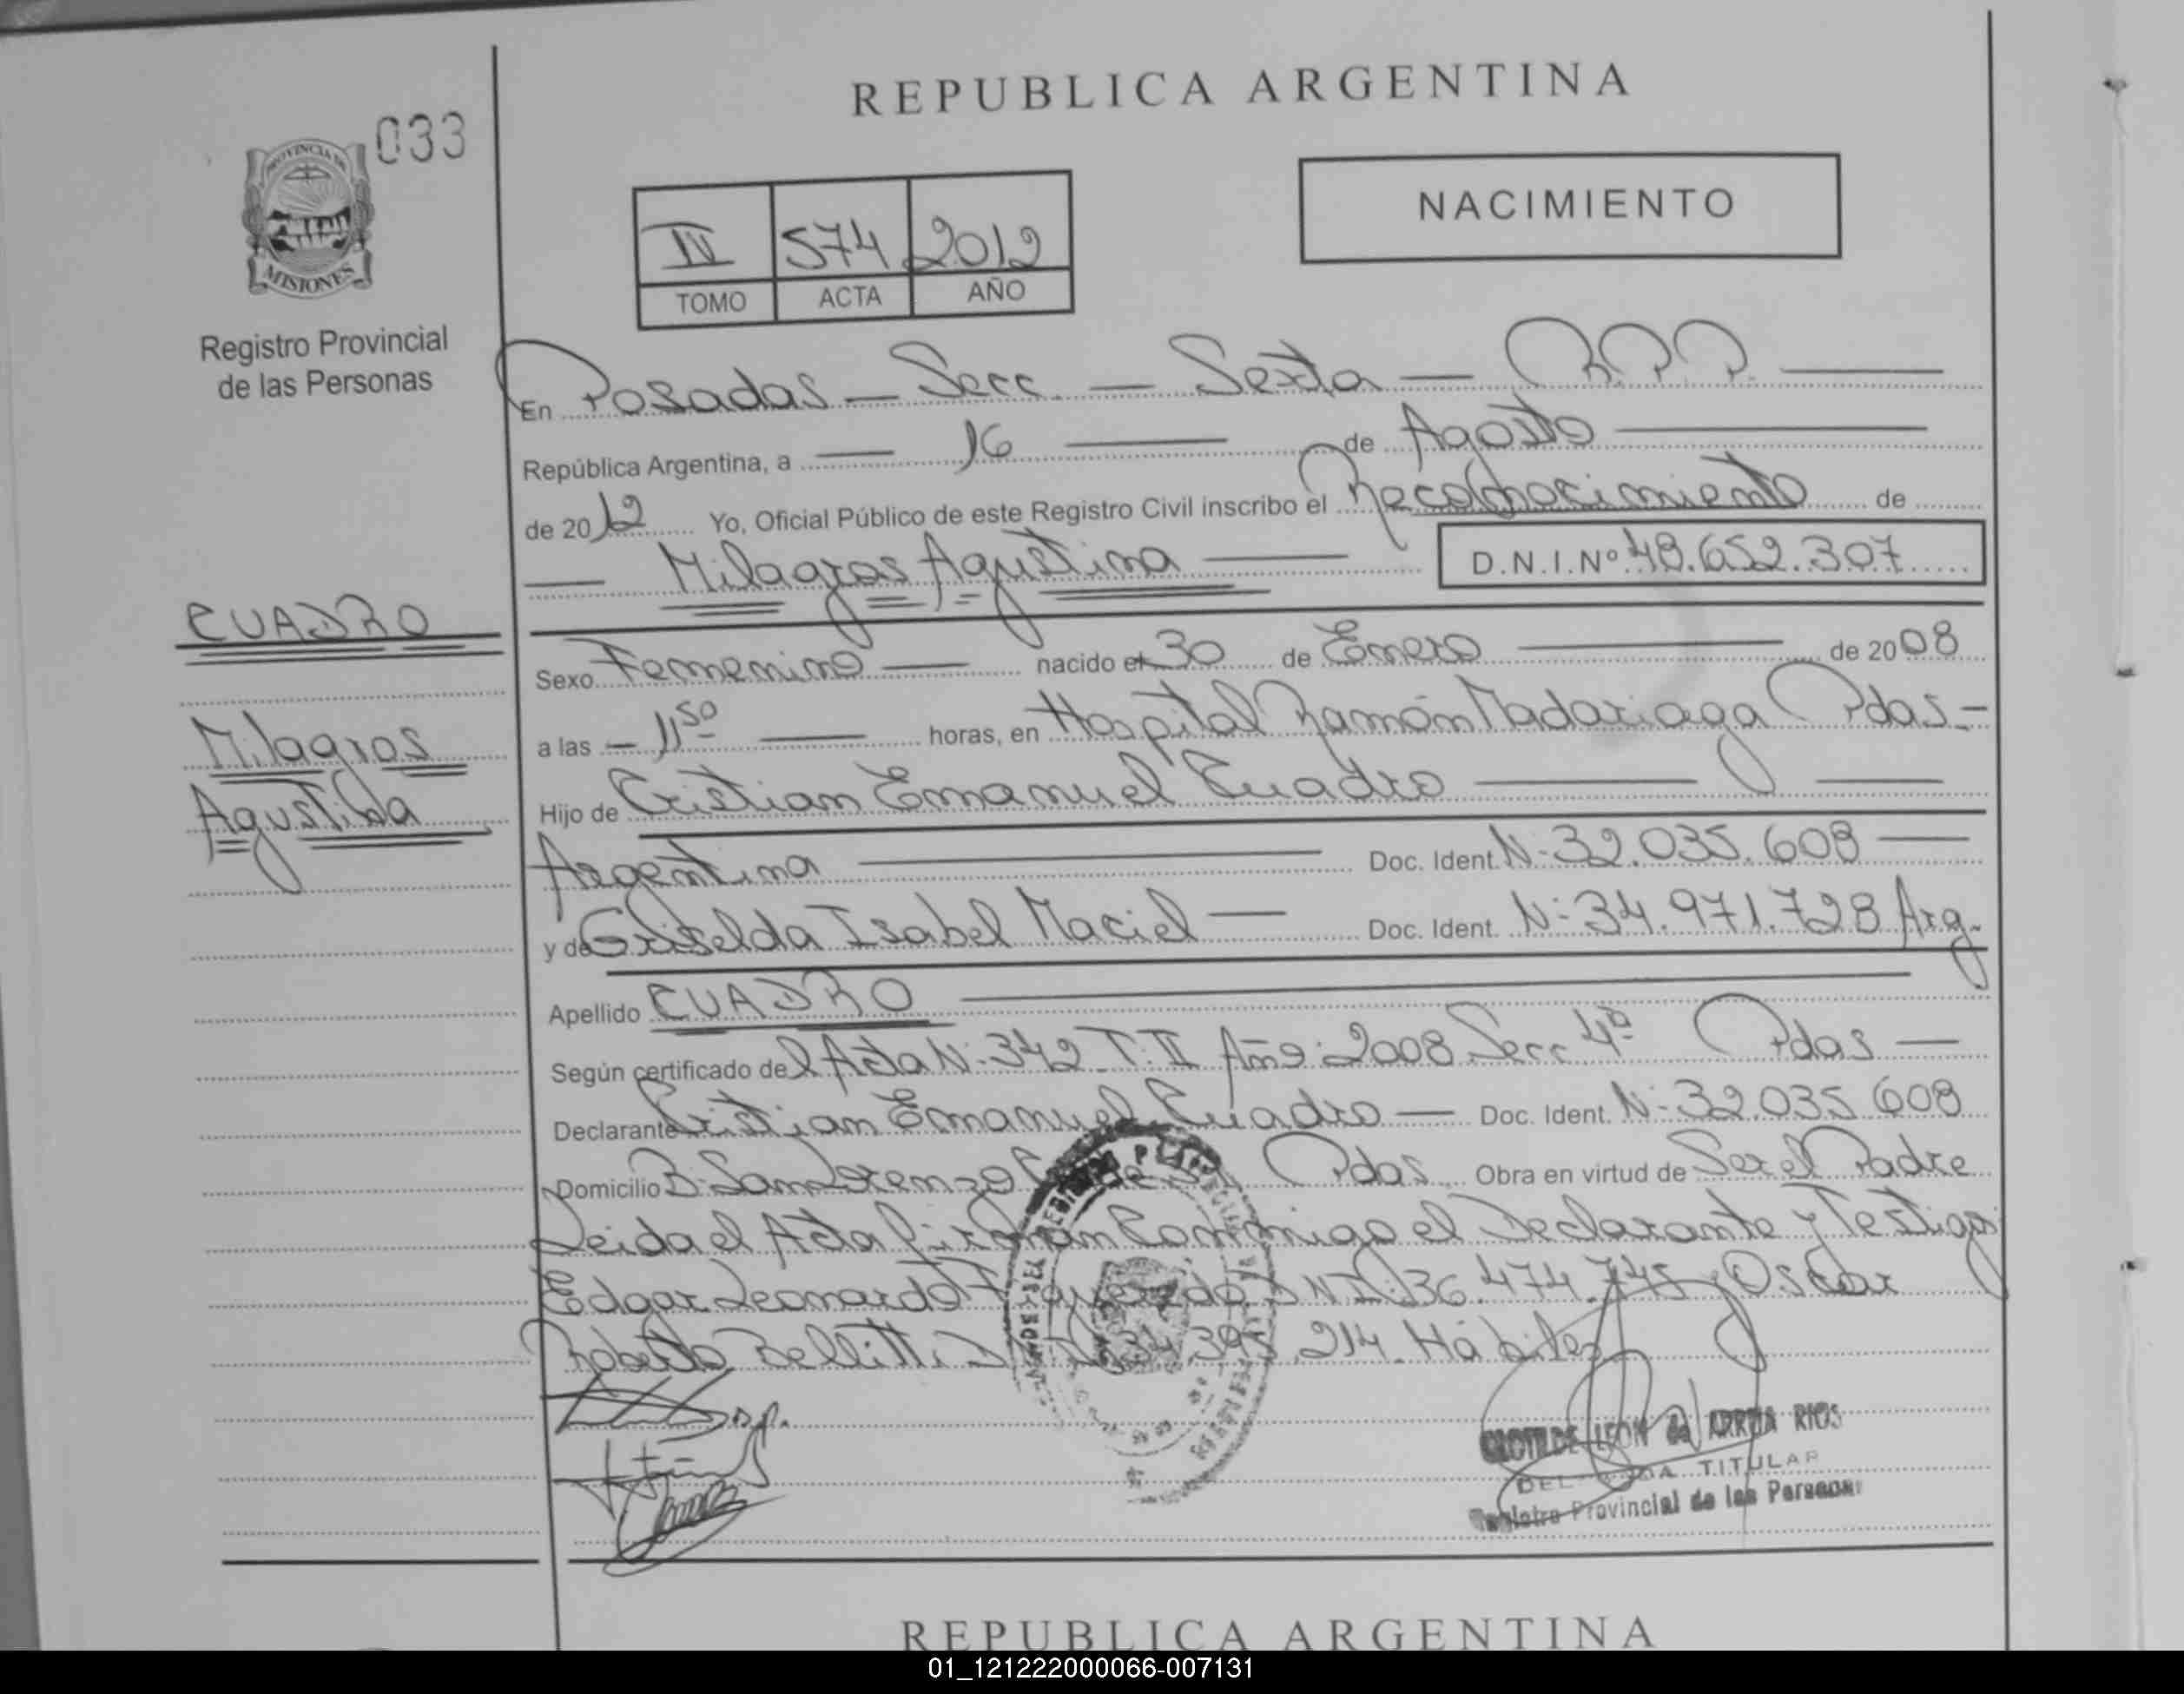 REPUBLICA ARGENTINA
033
PROVINCIA DE
MISIONES
Registro Provincial
de las Personas
NACIMIENTO
IV 574 2012
TOMO ACTA AÑO
En Posadas - Secc. - Sexta - R.P.P.
República Argentina, a 16 de Agosto
de 2012 Yo, Oficial Público de este Registro Civil inscribo el Reconocimiento de
Milagros Agustina D.N.I.Nº 48.652.307
CUADRO
Milagros
Agustina
Sexo Femenino nacido el 30 de Enero de 2008
a las 11 50 horas, en Hospital Ramón Madariaga Pdas-
Hijo de Cristian Emanuel Cuadro
Argentina Doc. Ident. N- 32.035.608
y de Griselda Isabel Maciel Doc. Ident. N- 34.971.728 Arg.
Apellido CUADRO
Según certificado del Acta N- 342 T. II Año 2008 Secc 4ª Pdas
Declarante Cristian Emanuel Cuadro Doc. Ident. N- 32.035.608
Domicilio B- San Lorenzo Pdas Obra en virtud de Ser el Padre
Leida el Acta firman Conmigo el Declarante y Testigos
Edgar Leonardo DNI 36.474.745 Oscar
Roberto Bellitti 34.395.214. Hábiles
CLOTILDE LEON de ARRUA RIOS
DELEGADA TITULAR
Registro Provincial de las Personas
REPUBLICA ARGENTINA
01_121222000066-007131